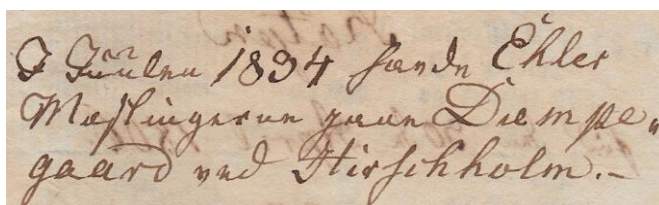 I Juulen 1834 havde Ehler
Mæslingerne paa Dumpe„
gaard ved Hirschholm.-